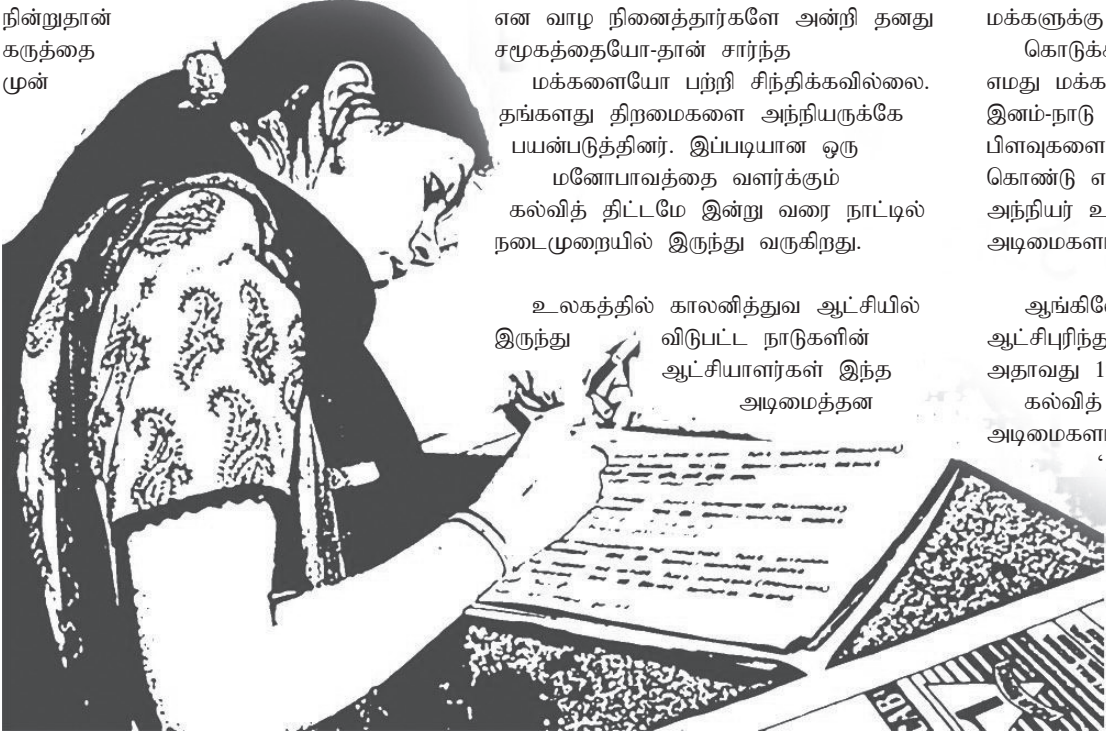 நின்றுதான்
கருத்தை
முன்
என வாழ நினைத்தார்களே அன்றி தனது
சமூகத்தையோ-தான் சார்ந்த
மக்களையோ பற்றி சிந்திக்கவில்லை.
தங்களது திறமைகளை அந்நியருக்கே
பயன்படுத்தினர். இப்படியான ஒரு
மனோபாவத்தை வளர்க்கும்
கல்வித் திட்டமே இன்று வரை நாட்டில்
நடைமுறையில் இருந்து வருகிறது.
உலகத்தில் காலனித்துவ ஆட்சியில்
இருந்து விடுபட்ட நாடுகளின்
ஆட்சியாளர்கள் இந்த
அடிமைத்தன
மக்களுக்கு
கொடுக்க
எமது மக்க
இனம்-நாடு
பிளவுகளை
கொண்டு எ
அந்நியர் உ
அடிமைகளா
ஆங்கிலே
ஆட்சிபுரிந்த
அதாவது 1
கல்வித்
அடிமைகளா